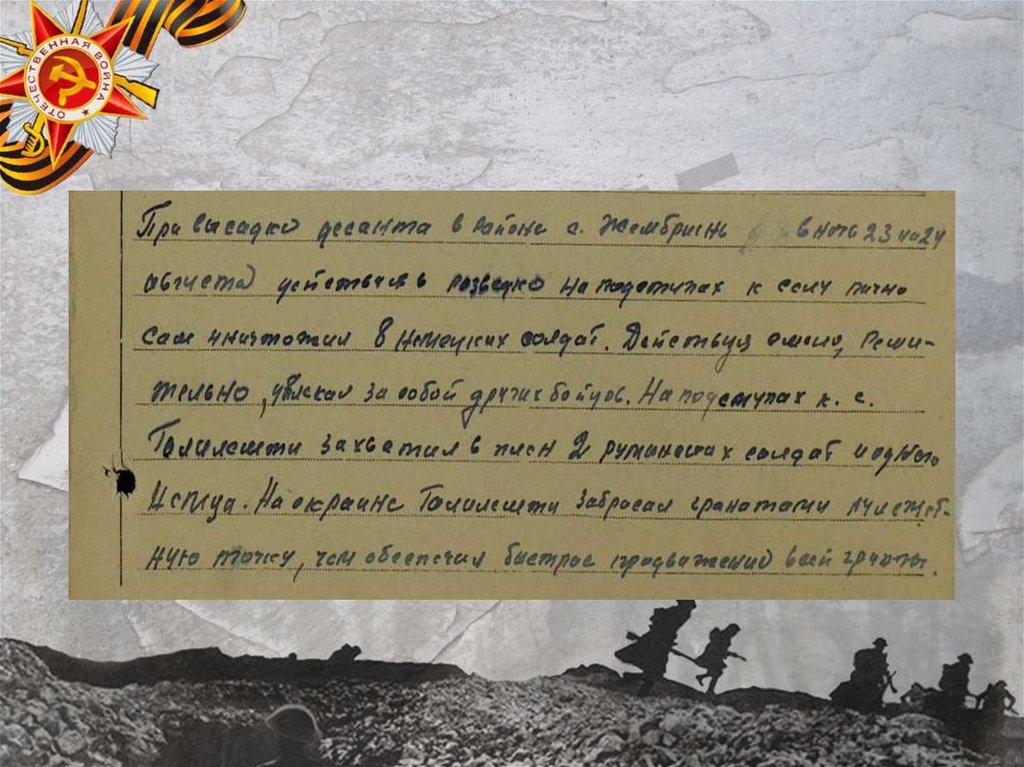 ОТЕЧЕСТВЕННАЯ ВОЙНА
При высадке десанта в районе с. Жембриень в ночь 23 на 24
августа действуя в разведке на подступах к селу лично
сам уничтожил 8 немецких солдат. Действуя смело, реши-
тельно, увлекал за собой других бойцов. На подступах к. с.
Галилешти захватил в плен 2 румынских солдат и одного
немца. На окраине Галилешти забросал гранатами пулемет-
ную точку, чем обеспечил быстрое продвижение всей группы.